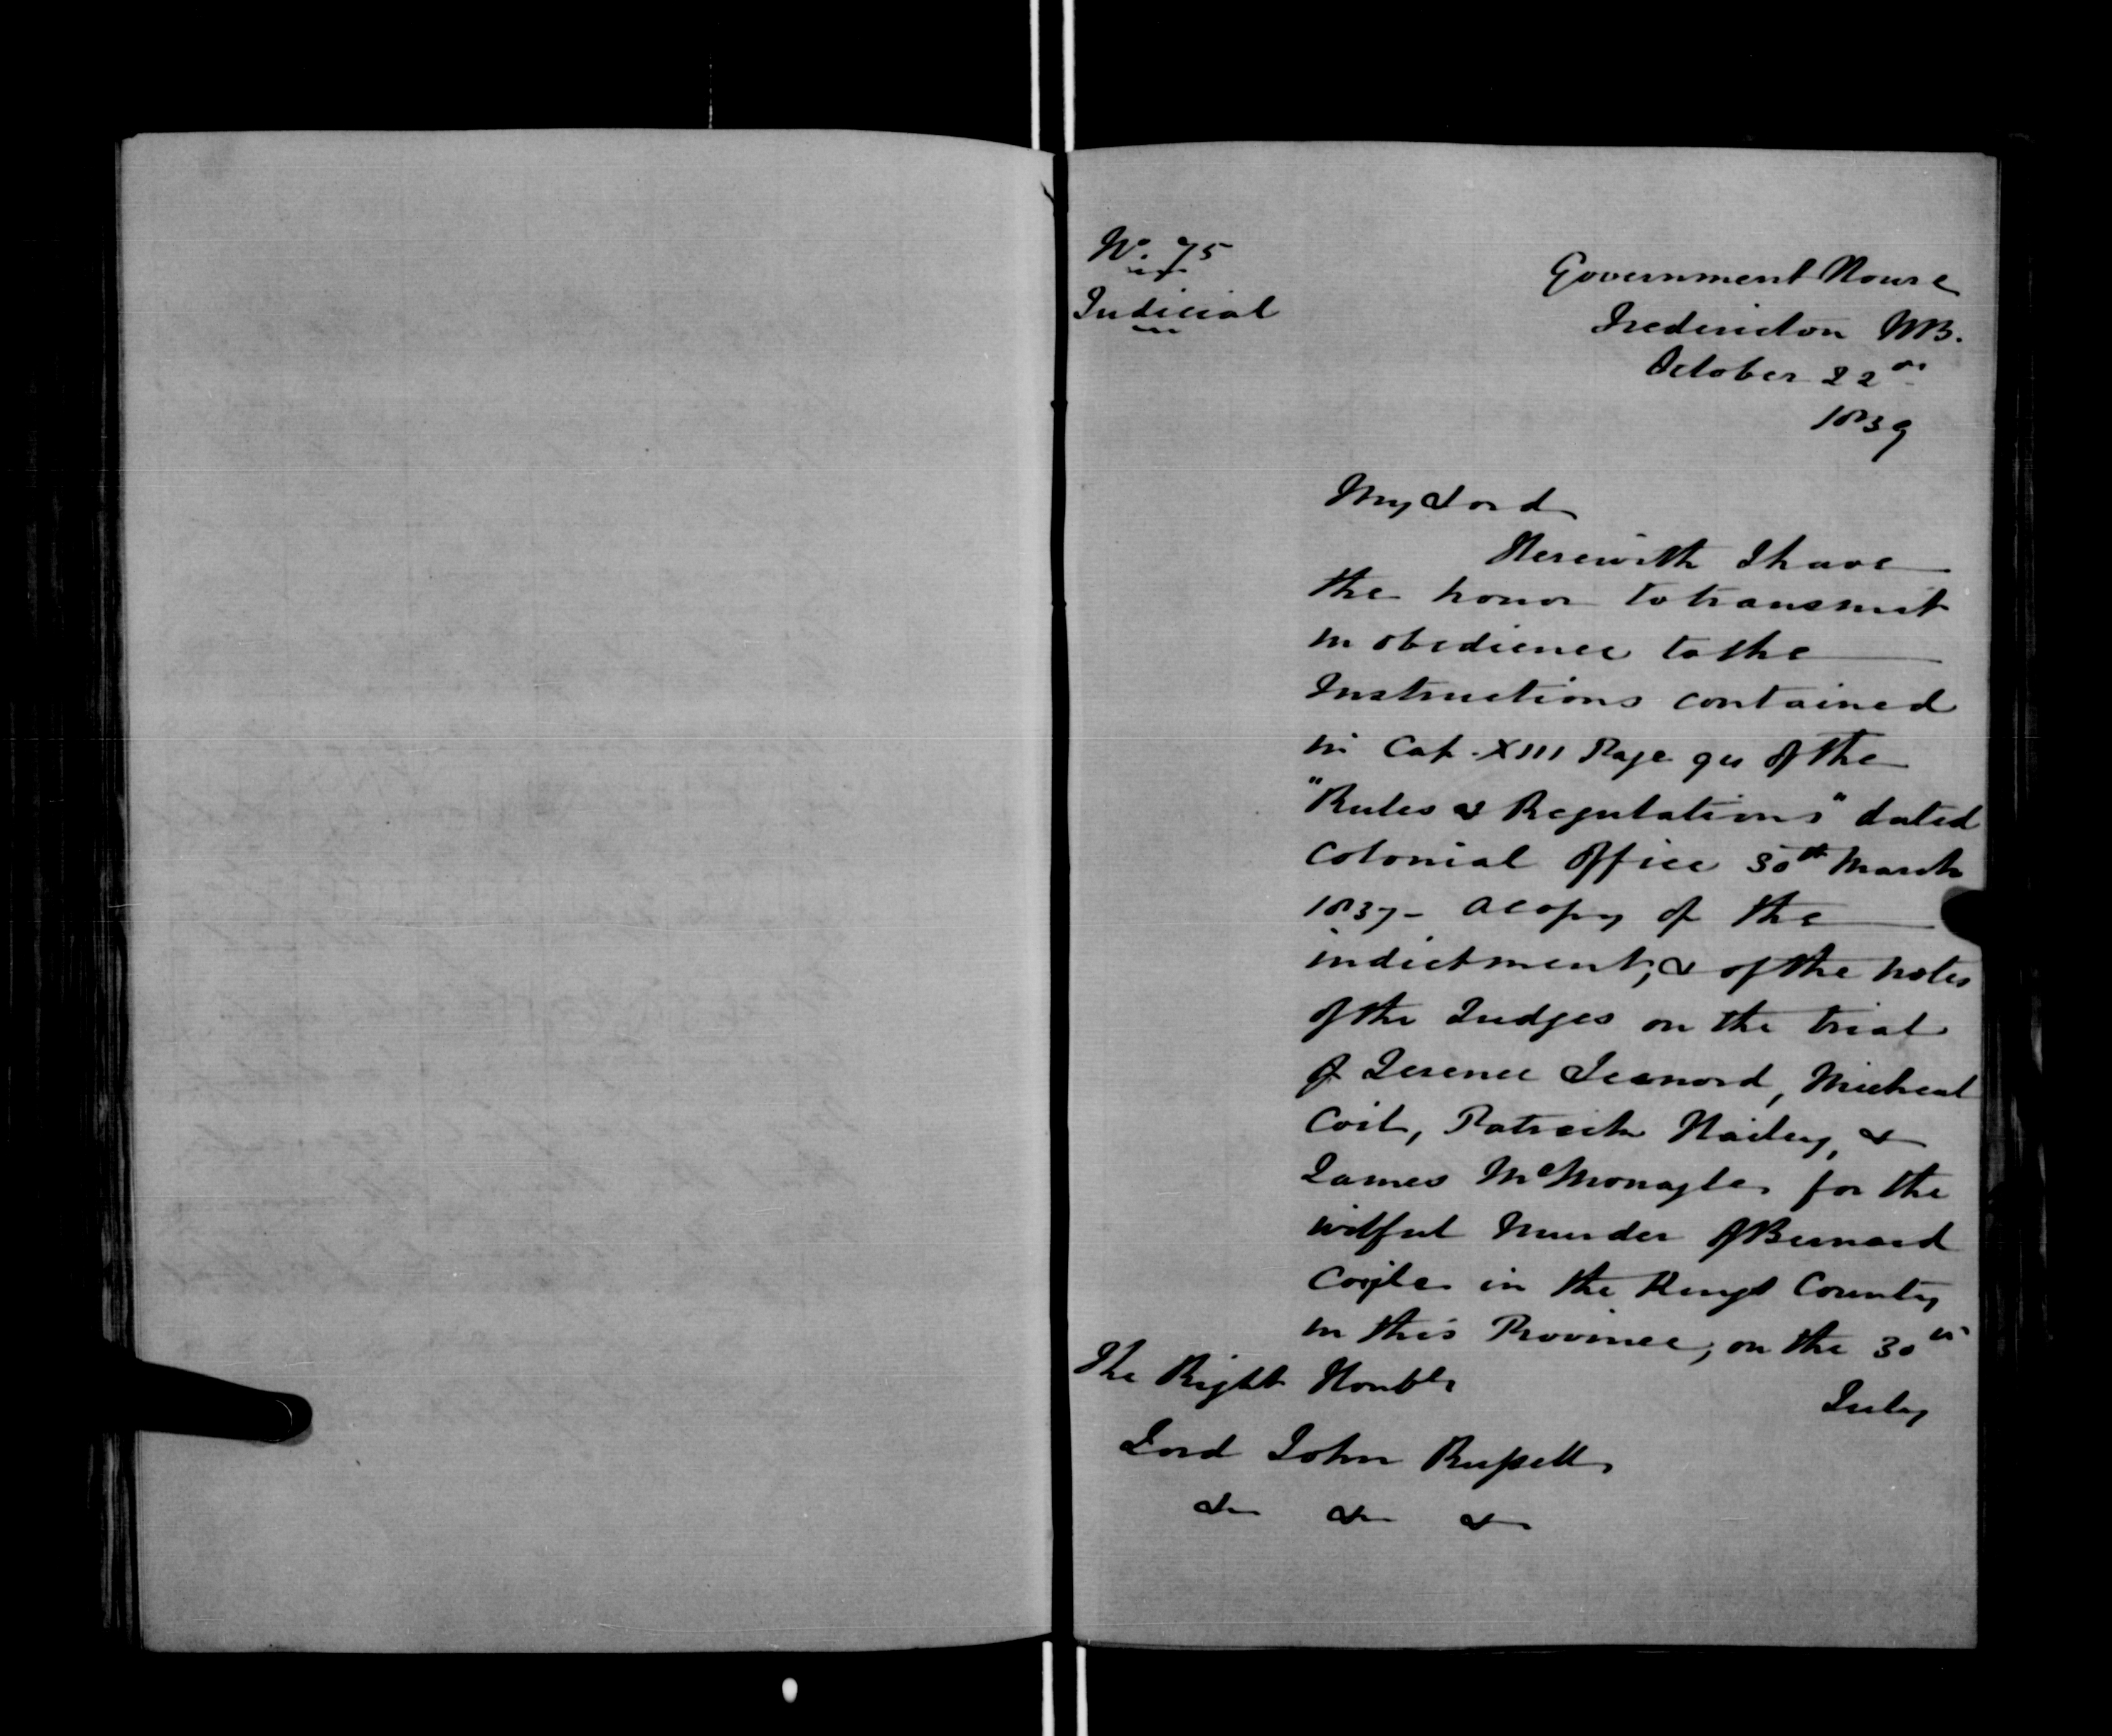 No. 75
Judicial
Government House
Fredericton NB.
October 22nd
1839
My Lord
Herewith I have
the honor to transmit
in obedience to the
Instructions contained
in Cap. XIII Page of the
"Rules & Regulations" dated
Colonial Office 30th March
1837 - a copy of the
indictment, & of the notes
of the Judges on the trial
of Terence Leonord, Micheal
Coil, Patrick Hailey, &
James McMonagle, for the
wilful Murder of Bernard
Coyle in the Kings County
in this Province, on the 30th
July
The Right Honble
Lord John Russell
&c &c &c